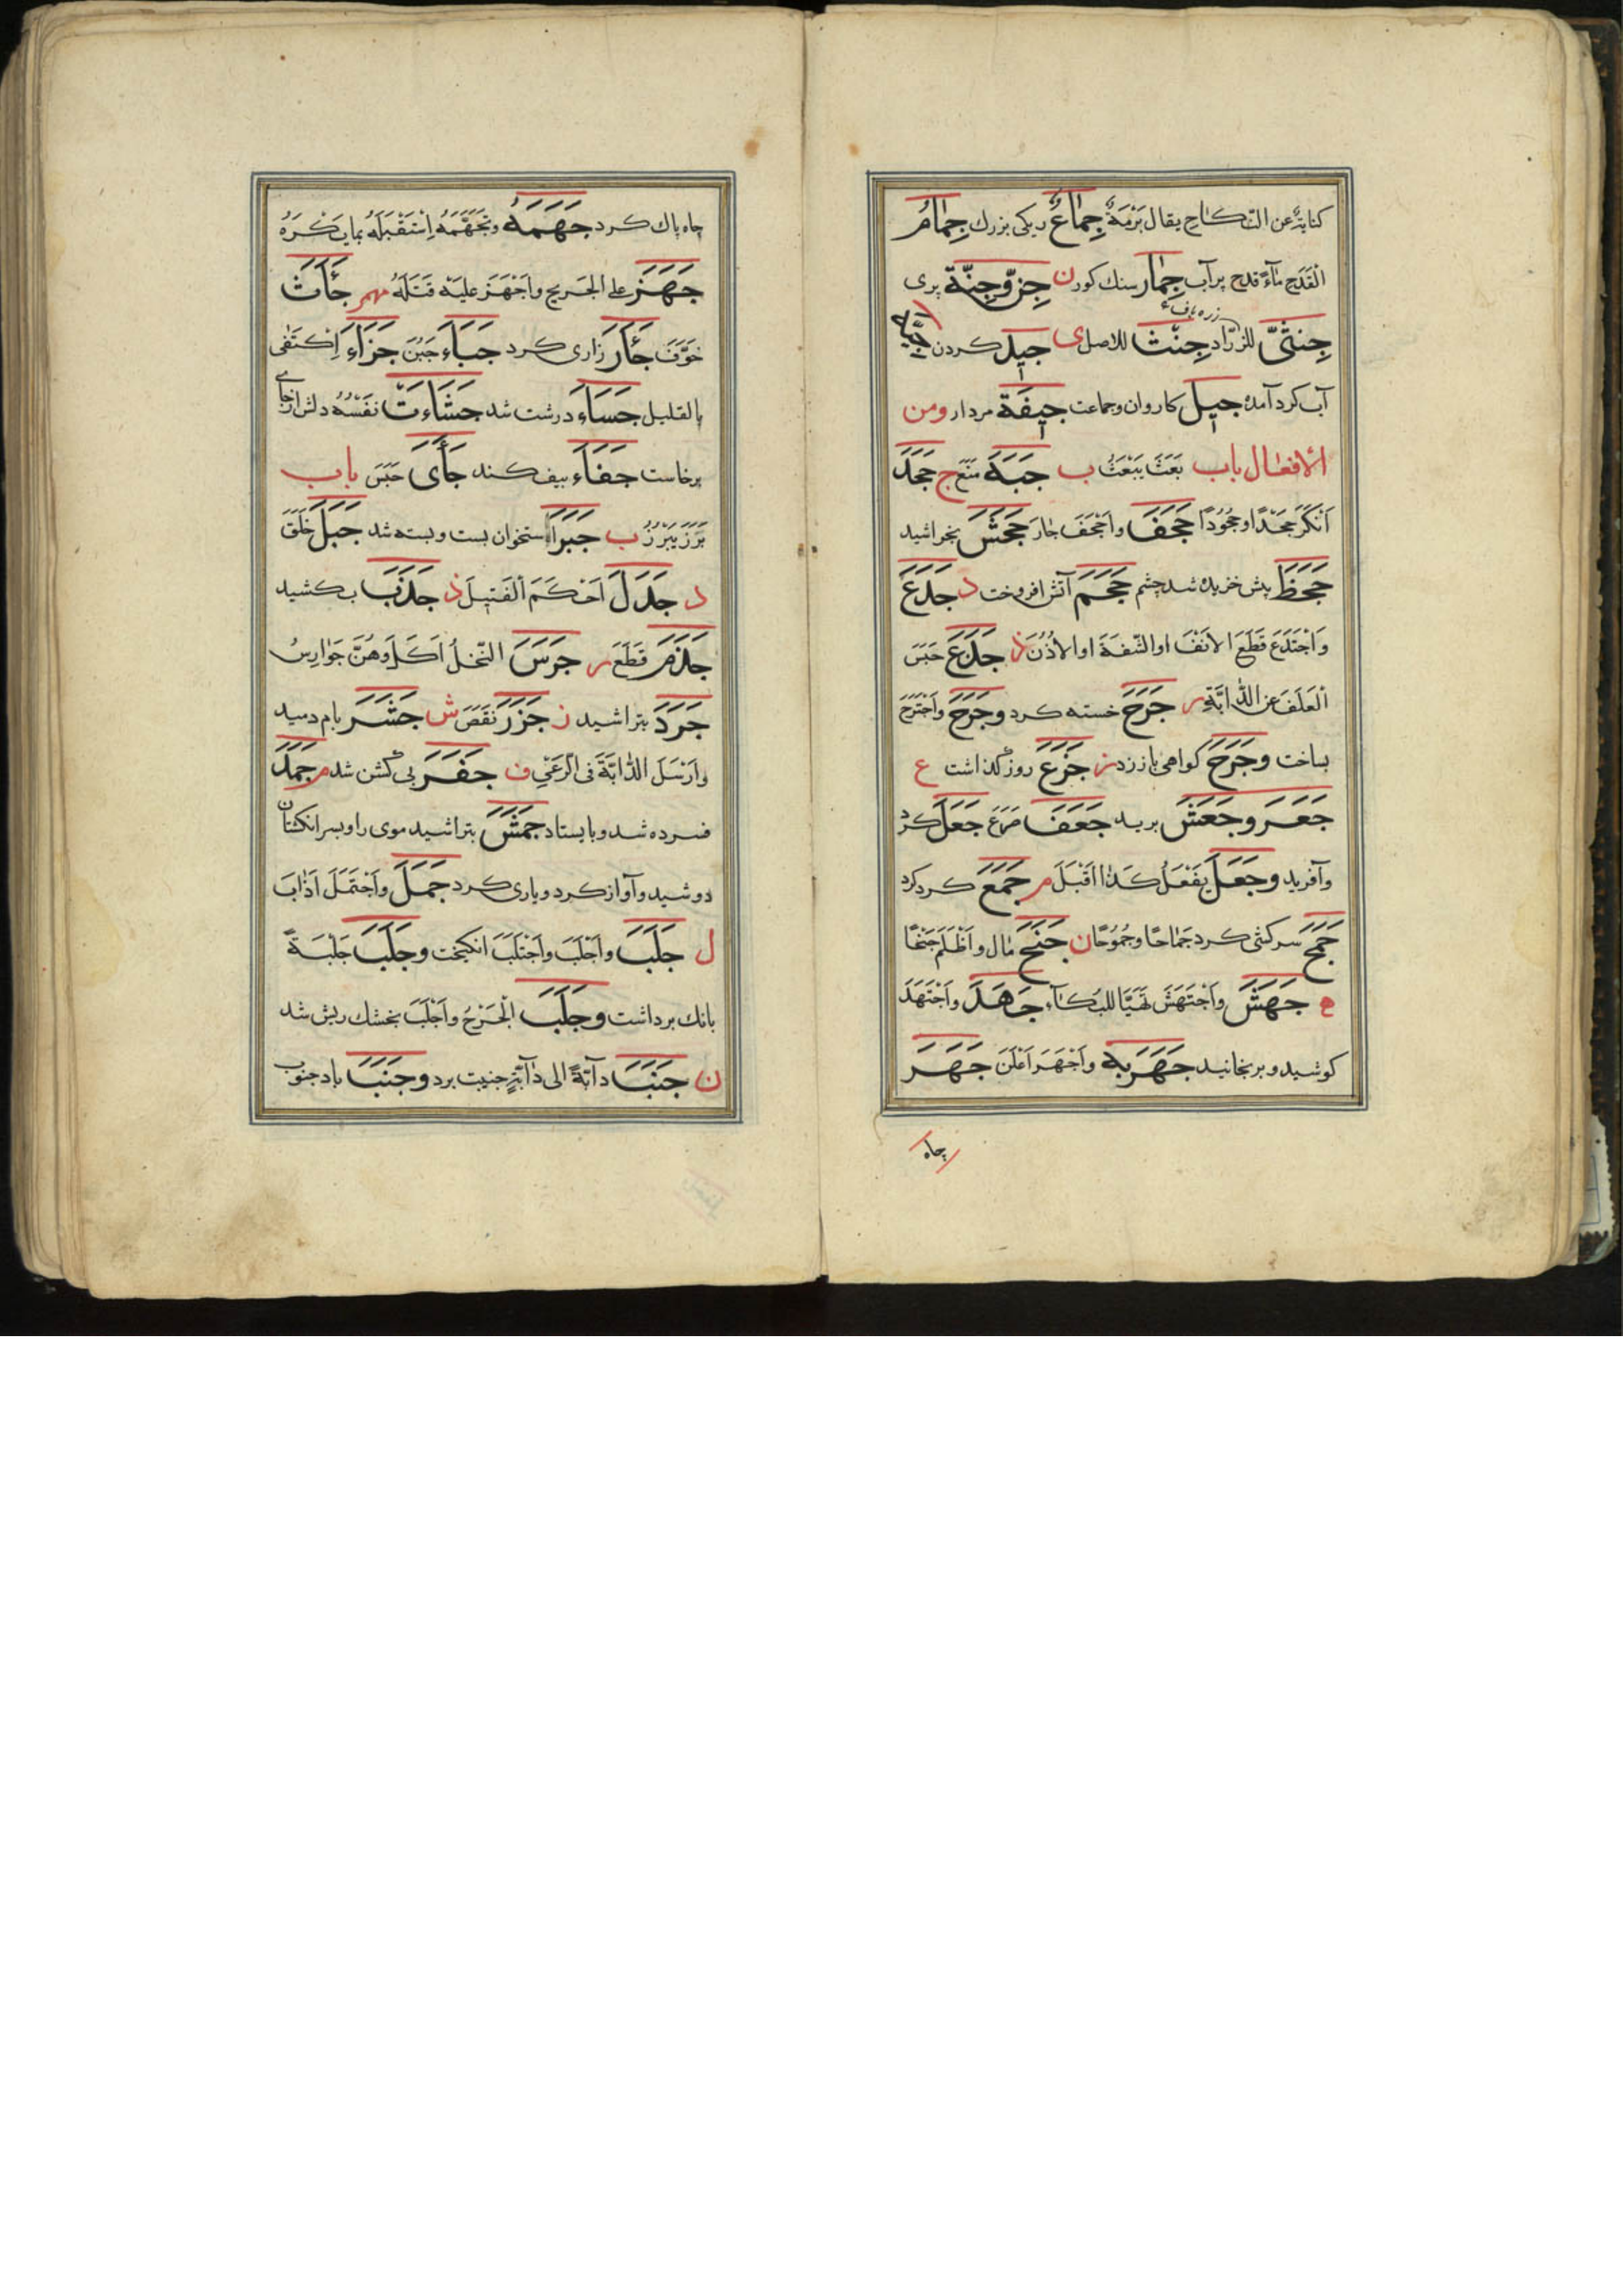 كناية عن النكاح يقال بَرْمَةٌ جِمَاعٌ ديكى بزرك جِمَامُ
القَدَحِ مَآءً قدح پرآب جِمَار سنك كور ن جِنّ وَجِنَّة پرى
زره باف
جِنثىّ للزرّاد جِنْث للاصل ى جيد كردن
آب كرد آمده جيل كاروان وجماعت جيفة مردار ومن
الافعال باب بَعَثَ يَبْعَثُ ب جَبَهَ مَنَعَ ج جَحَدَ
اَنْكَرَ جَحْدًا وجُحُودًا جَحَفَ واَجْحَفَ جارَ جَحَشَ بخراشيد
جَحَظَ پيش خزيده شد چشم جَحَمَ آتش افروخت د جَدَعَ
وَاجْتَدَعَ قَطَعَ الانَفَ او الشفَةَ او الاُذُنَ ذ جَذَعَ حَبَسَ
العَلَفَ عن الدَّابَّةِ ر جَرَحَ خسته كرد وجَرَحَ واَجْتَرَحَ
بساخت وجَرَحَ كواهى باز زد ز جَزَعَ روز كذاشت ع
جَعَرَ وجَعَشَ بريد جَعَفَ صَرَعَ جَعَلَ كرد
وآفريد وجَعَلَ يَفْعَلُ كَذا اَقْبَلَ م جَمَعَ كرد كرد
جَمَحَ سركشى كرد جَمَاحًا وجُمُوحًا ن جَنَحَ مَال واَظْلَمَ جَنْحًا
ه جَهَشَ واَجْتَهَشَ تَهَيَّا للبُكآء جَاهَدَ واَجْتَهَدَ
كوشيد وبرنجانيد جَهَرَ بِهِ واَجْهَرَ اَعْلَنَ جَهَرَ
چاه
چاه پاك كرد جَهَمَهُ وتَجَهَّمَهُ اِسْتَقْبَلَهُ بما يَكْرَهُ
جَهَزَ على الجَريح واَجْهَزَ عليه قَتَلَهُ مهم جَأَثَ
خَوَّفَ جَأَرَ زارى كرد جَبَاءَ جَبُنَ جَزَاءَ اِكْتَفى
بالقليل جَسَاءَ درشت شد جَشَاءَتْ نَفْسُهُ دلش از جاى
برخاست جَفَاءَ بيفكند جَأَى حَبَسَ باب
بَرَزَ يَبْرُزُ ب جَبَرَ استخوان ببست وبسته شد جَبَلَ خَلَقَ
د جَدَلَ اَحْكَمَ الفَتيلَ ذ جَذَبَ بكشيد
جَذَمَ قَطَعَ ر جَرَسَ النّحْلُ اَكَلَ وهُنَّ جَوَارِسُ
جَرَدَ بتراشيد ز جَزَرَ نَقَصَ ش جَشَرَ بام دميد
واَرْسَلَ الدابَّةَ فى الرّعْىِ ف جَفَرَ بى كشن شد م جَمَدَ
فسرده شد وبايستاد جَمَشَ بتراشيد موى را وبسر انكشتان
دوشيد وآواز كرد وبازى كرد جَمَلَ واَجْتَمَلَ اَذَابَ
ل جَلَبَ واَجْلَبَ واَجْتَلَبَ انكيخت وجَلَبَ جَلْبَةً
بانك برداشت وجَلَبَ الجَرْحُ واَجْلَبَ بخشك ريش شد
ن جَنَبَ دآبّةً الى دآبّةٍ جنيبت برد وجَنَبَ باد جنوب